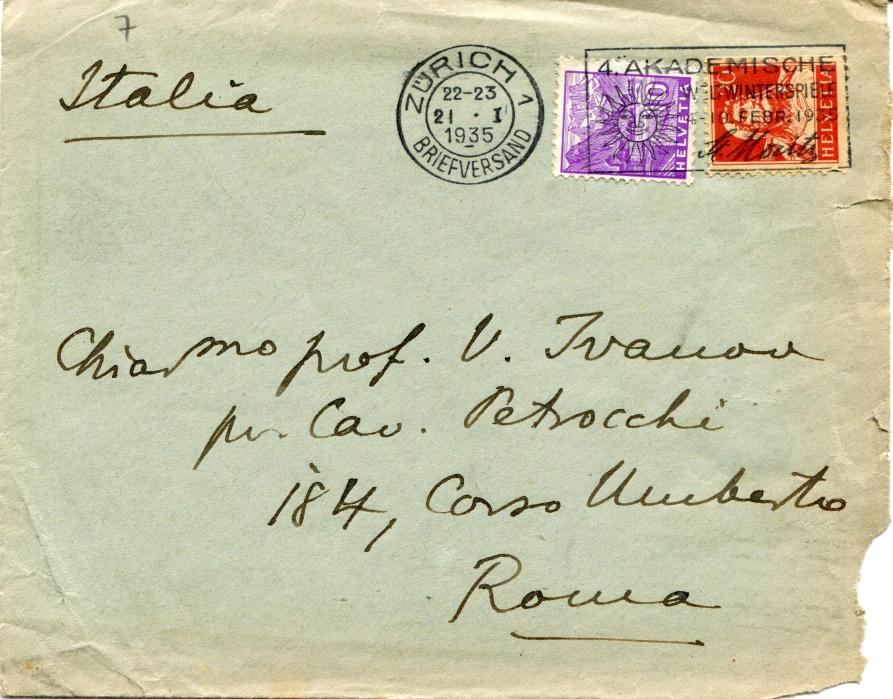 7
Italia
ZÜRICH 1
22-23
21 · I
1935
BRIEFVERSAND
4. AKADEMISCHE
WELTWINTERSPIELE
4-10. FEBR. 1935
St. Moritz
HELVETIA
HELVETIA
Chiarmo prof. V. Ivanov
pr. Cav. Petrocchi
184, Corso Umberto
Roma